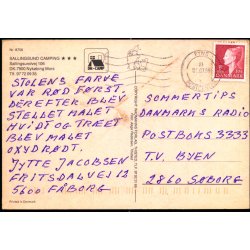 Nr. 8766
SALLINGSUND CAMPING ★★★
Sallingsundvej 104
DK 7900 Nykøbing Mors
Tlf. 97 72
STOLENS FARVE
VAR RØD FØRST.
DEREFTER BLEV
STELLET MALET
HVIDT OG TRÆET
BLEV MALET
OXYDRØDT.
JYTTE JACOBSEN
FRITSDALVEJ 12
5600 FÅBORG
SOMMERTIPS
DANMARKS RADIO
POSTBOKS 3333
T.V. BYEN
2860 SØBORG
Printed in Denmark